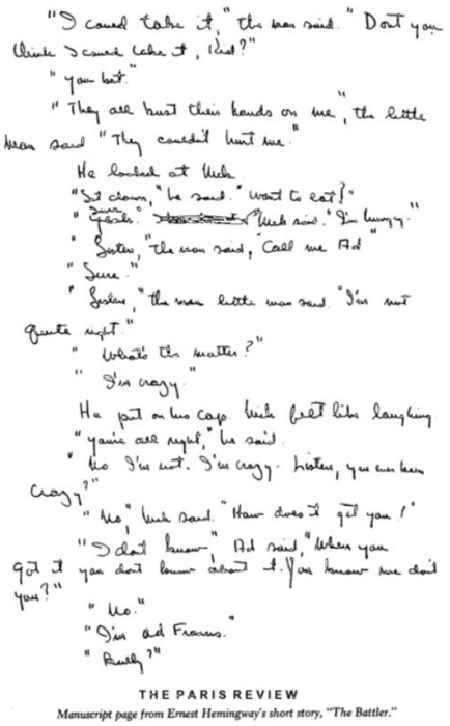 "I could take it," the man said. "Dont you
think I could take it, Kid?"
"You bet."
"They all bust their hands on me", the little
man said "They couldn't hurt me."
He looked at Nick
"Sit down," he said. "Want to eat?"
"Sure." Nick said. "I'm hungry."
"Listen," the man said, "Call me Ad"
"Sure."
"Listen," the man little man said. "I'm not
quite right."
"What's the matter?"
"I'm crazy."
He put on his cap. Nick felt like laughing
"You're all right," he said.
"No I'm not. I'm crazy. Listen, you ever been
crazy?"
"No," Nick said. "How does it get you?"
"I dont know," Ad said, "When you
got it you dont know about it. You know me dont
you?"
"No."
"I'm ad Francis."
"Really?"
THE PARIS REVIEW
Manuscript page from Ernest Hemingway's short story, "The Battler."